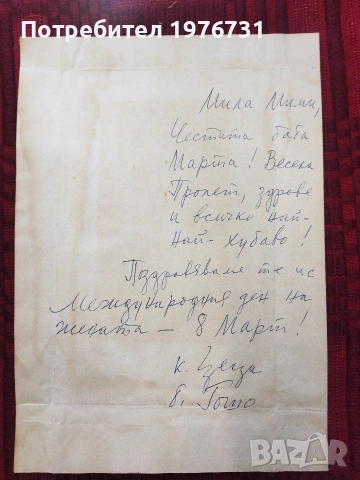 Потребител 1976731
Мила Мими,
Честита баба
Марта! Весела
Пролет, здраве
и всичко най-
най-хубаво!
Поздравяваме те и с
Международния ден на
жената – 8 Март!
к.
б. Гошо
bazar